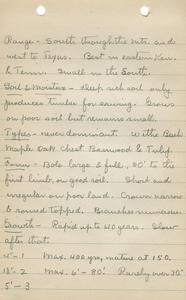 Range - South through the Mts. and
west to Texas. Best in eastern Ken.
& Tenn. Small in the South.
Soil & Moisture - Keep rich soil only
produces timber for sawing. Grows
on poor soil but remains small.
Types - never dominant. With Beech
Maple Oak Chest Basswood & Tulip.
Form - Bole large & full, 50' to the
first limb, on good soil. Short and
irregular on poor land. Crown narrow
& round topped. Branches numerous.
Growth - Rapid up to 40 years. Slow
after that.
12"- 1 Max. 400 yrs, mature at 150.
18"- 2 Max. 6' - 80'. Rarely over 30"
5'- 3